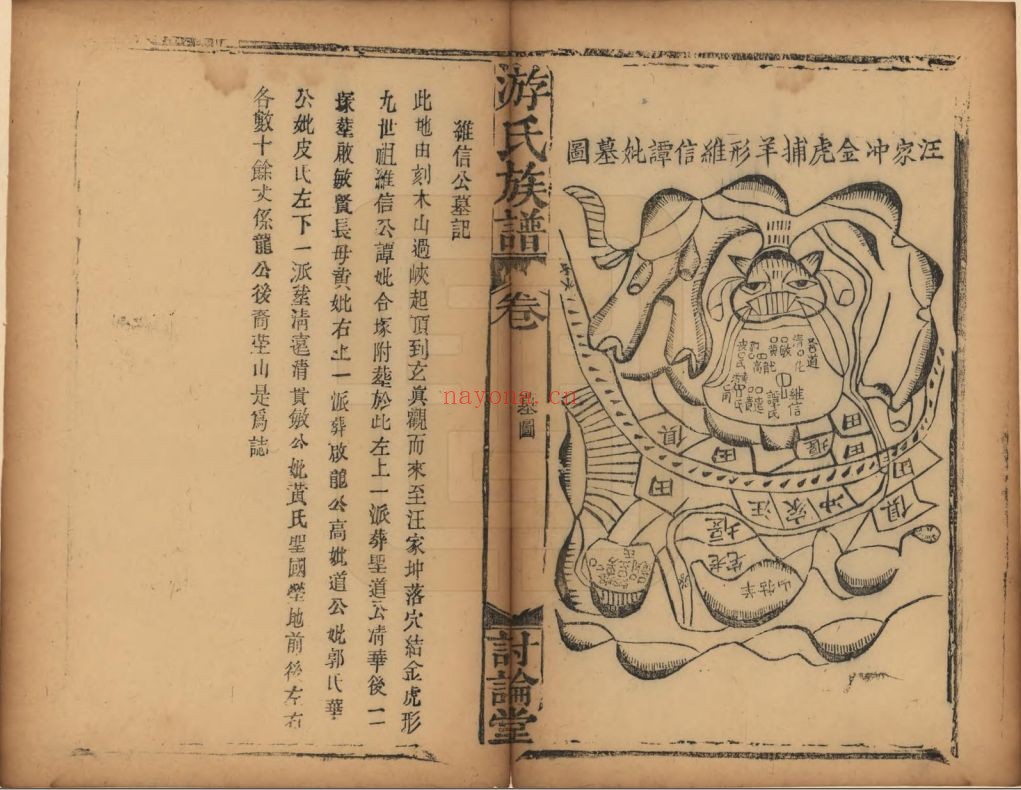 汪家冲金虎捕羊形維信譚妣墓圖
聖道
清化
敏
維信
譚氏
田
田
田
田
俱
俱
汪家冲
羊牯山
游氏族譜
卷
墓圖
討論堂
維信公墓記
此地由刻木山過峽起頂到玄真觀而來至汪家坤落穴結金虎形
九世祖維信公譚妣合塚附塟於此左上一派葬聖道公清華後一
塚塟啟敏賢長毋黄妣右上一派葬啟龍公高妣道公妣郭氏華
公妣皮氏左下一派塟清遠清貴敏公妣黄氏聖國塋地前後左右
各數十餘丈係龍公後裔塋山是爲誌
nayona.cn